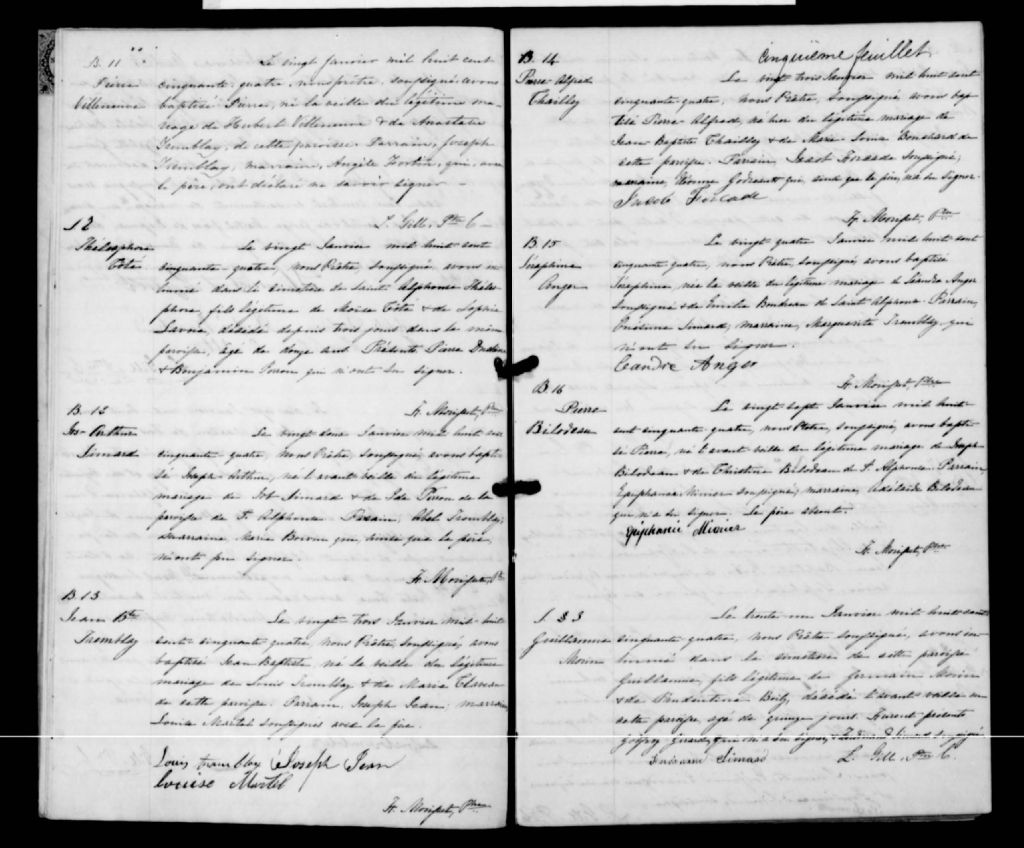 B. 11
Pierre
Villeneuve
Le vingt janvier mil huit cent
cinquante quatre, nous prêtre, soussigné avons
baptisé Pierre, né la veille du légitime ma-
riage de Hubert Villeneuve & de Anastasie
Tremblay, de cette paroisse. Parrain, Joseph
Tremblay, marraine, Angèle Fortin, qui, avec
le père, ont déclaré ne savoir signer -
L. Gill, Ptre C -
S 2
Thélesphore
Côté
Le vingt Janvier mil huit cent
cinquante quatre, nous Prêtre, soussigné, avons in-
humé dans le cimetière de Saint Alphonse Théles-
phore, fils légitime de Moïse Côté & de Sophie
Savoie, décédé depuis trois jours dans la même
paroisse, âgé de douze ans. Présents Pierre
& Benjamin qui n'ont su signer.
Fr Morisset, Ptre
B. 12
Jos. Arthur
Simard
Le vingt deux Janvier mil huit cent
cinquante quatre, nous Prêtre, soussigné, avons bapti-
sé Joseph Arthur, né l'avant veille du légitime
mariage de Job Simard & de Ide Perron de la
paroisse de St. Alphonse. Parain, Abel Tremblay,
marraine, Marie Boivin qui, ainsi que le père,
n'ont pu signer.
Fr Morisset, Ptre
B. 13
Jean Bte
Tremblay
Le vingt trois Janvier mil huit
cent cinquante quatre, nous Prêtre soussigné, avons
baptisé Jean Baptiste, né la veille du légitime
mariage de Louis Tremblay & de Marie
de cette paroisse. Parrain Joseph Jean, marraine,
Louise Martel soussignés avec le père.
Louis trembley Joseph Jean
Louise Martel
Fr. Morisset, Ptre
Cinquième feuillet
B. 14
Pierre Alfred
Thailly
Le vingt trois Janvier mil huit cent
cinquante quatre, nous Prêtre, soussigné, avons bap-
tisé Pierre Alfred, né hier du légitime mariage de
Jean Baptiste Thailly & de Marie Louise Bouchard de
cette paroisse. Parrain, Jacob Forcade soussigné,
marraine, qui, ainsi que le père, n'a su signer.
Jacob Forcade
Fr Morisset, Ptre
B 15
Séraphine
Anger
Le vingt quatre Janvier mil huit cent
cinquante quatre, nous Prêtre, soussigné, avons baptisé
Séraphine, née la veille du légitime mariage de Léandre Anger
soussigné & de Emilie Boudreau de Saint Alphonse. Parrain,
Onésime Simard, marraine, Marguerite Tremblay qui
n'ont su signer.
Leandre Anger
Fr Morisset, Ptre
B 16
Pierre
Bilodeau
Le vingt sept Janvier mil huit
cent cinquante quatre, nous Prêtre, soussigné, avons bapti-
sé Pierre, né l'avant veille du légitime mariage de Joseph
Bilodeau & de Christine Bilodeau de St. Alphonse. Parrain,
Epiphanie Mivier soussigné, marraine, Adélaïde Bilodeau
qui n'a su signer. Le père absent.
Epiphanie Mivier
Fr Morisset, Ptre
S 3
Guillaume
Morin
Le trente un Janvier mil huit cent
cinquante quatre, nous Prêtre soussigné, avons in-
humé dans le cimetière de cette paroisse
Guillaume, fils légitime de Germain Morin
& de Prudentine Boily, décédé l'avant veille en
cette paroisse âgé de quinze jours. Furent présents
Girard, qui n'a su signer, & Ferdinand Simard soussigné
Ferdinand Simard
L. Gill, Ptre C.